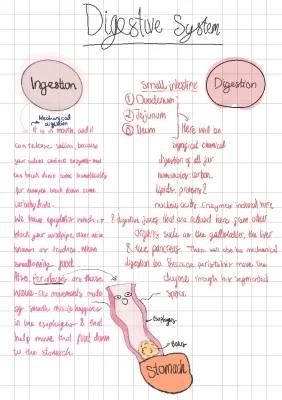 Digestive System
Ingestion
Mechanical
digestion
It is in mouth, and it
can release saliva, because
your saliva contains enzymes and
can break down some
for example break down some
carbohydrate.
We have epiglottis which
block your windpipe, other wise
known as trachea, when
swallowing food.
Also, Peristalsis are these
wave-like movements
eg. smooth muscle happens
in the esophagus & that
help move that food down
to the stomach
Small intestine
① Duodenum
② Jejunum
③ Ileum
Digestion
Here will be
significal chemical
digestion of all four
biomolecules: carbon,
lipids, proteins &
nucleic acids. Enzymes involved here
& digestive juices that are released here from other
organs such as the gallbladder, the liver
& the pancreas. There will also be mechanical
digestion too. Because peristalsis move the
through her segmented
space.
Esophagus
Bolus
Stomach